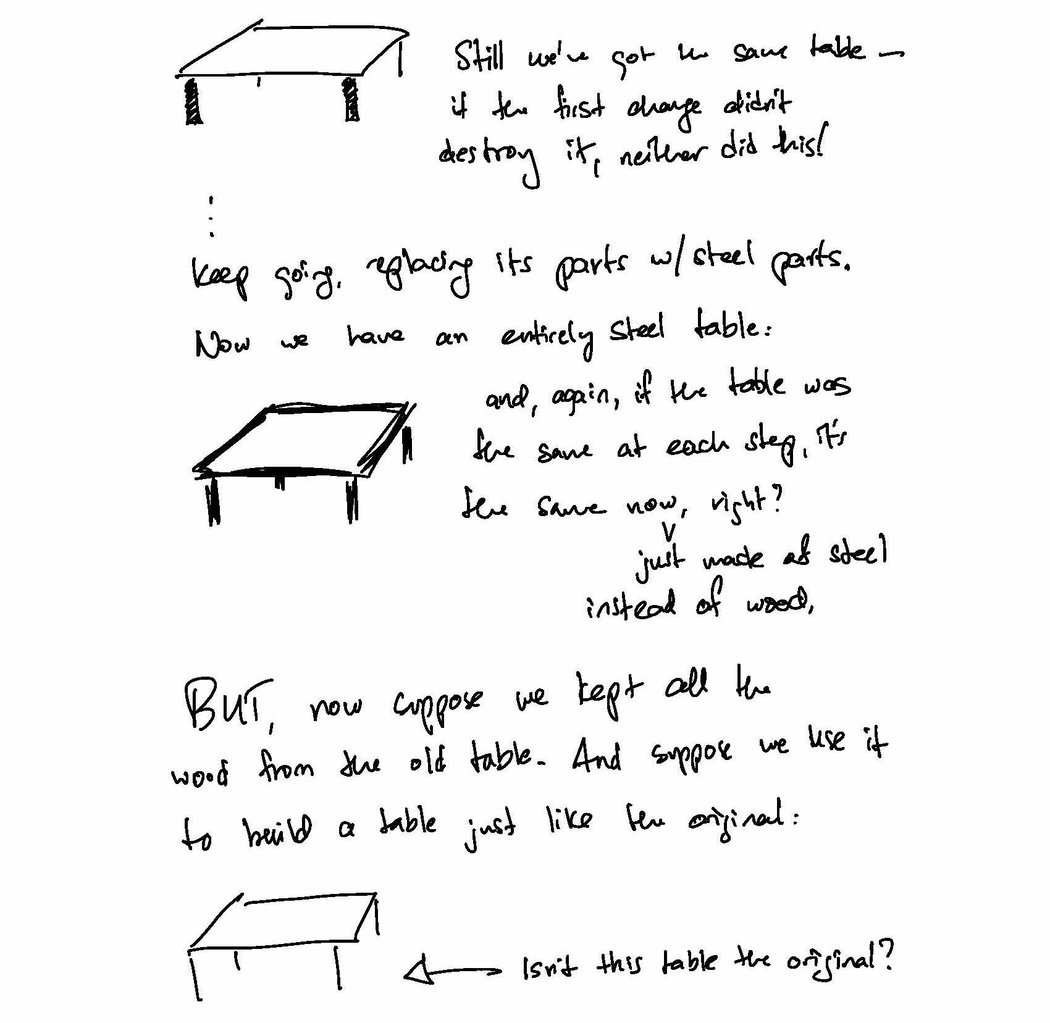 Still we've got the same table —
if the first change didn't
destroy it, neither did this!
⋮
keep going, replacing its parts w/ steel parts.
Now we have an entirely steel table:
and, again, if the table was
the same at each step, it's
the same now, right?
just made of steel
instead of wood,
BUT, now suppose we kept all the
wood from the old table. And suppose we use it
to build a table just like the original:
Isn't this table the original?